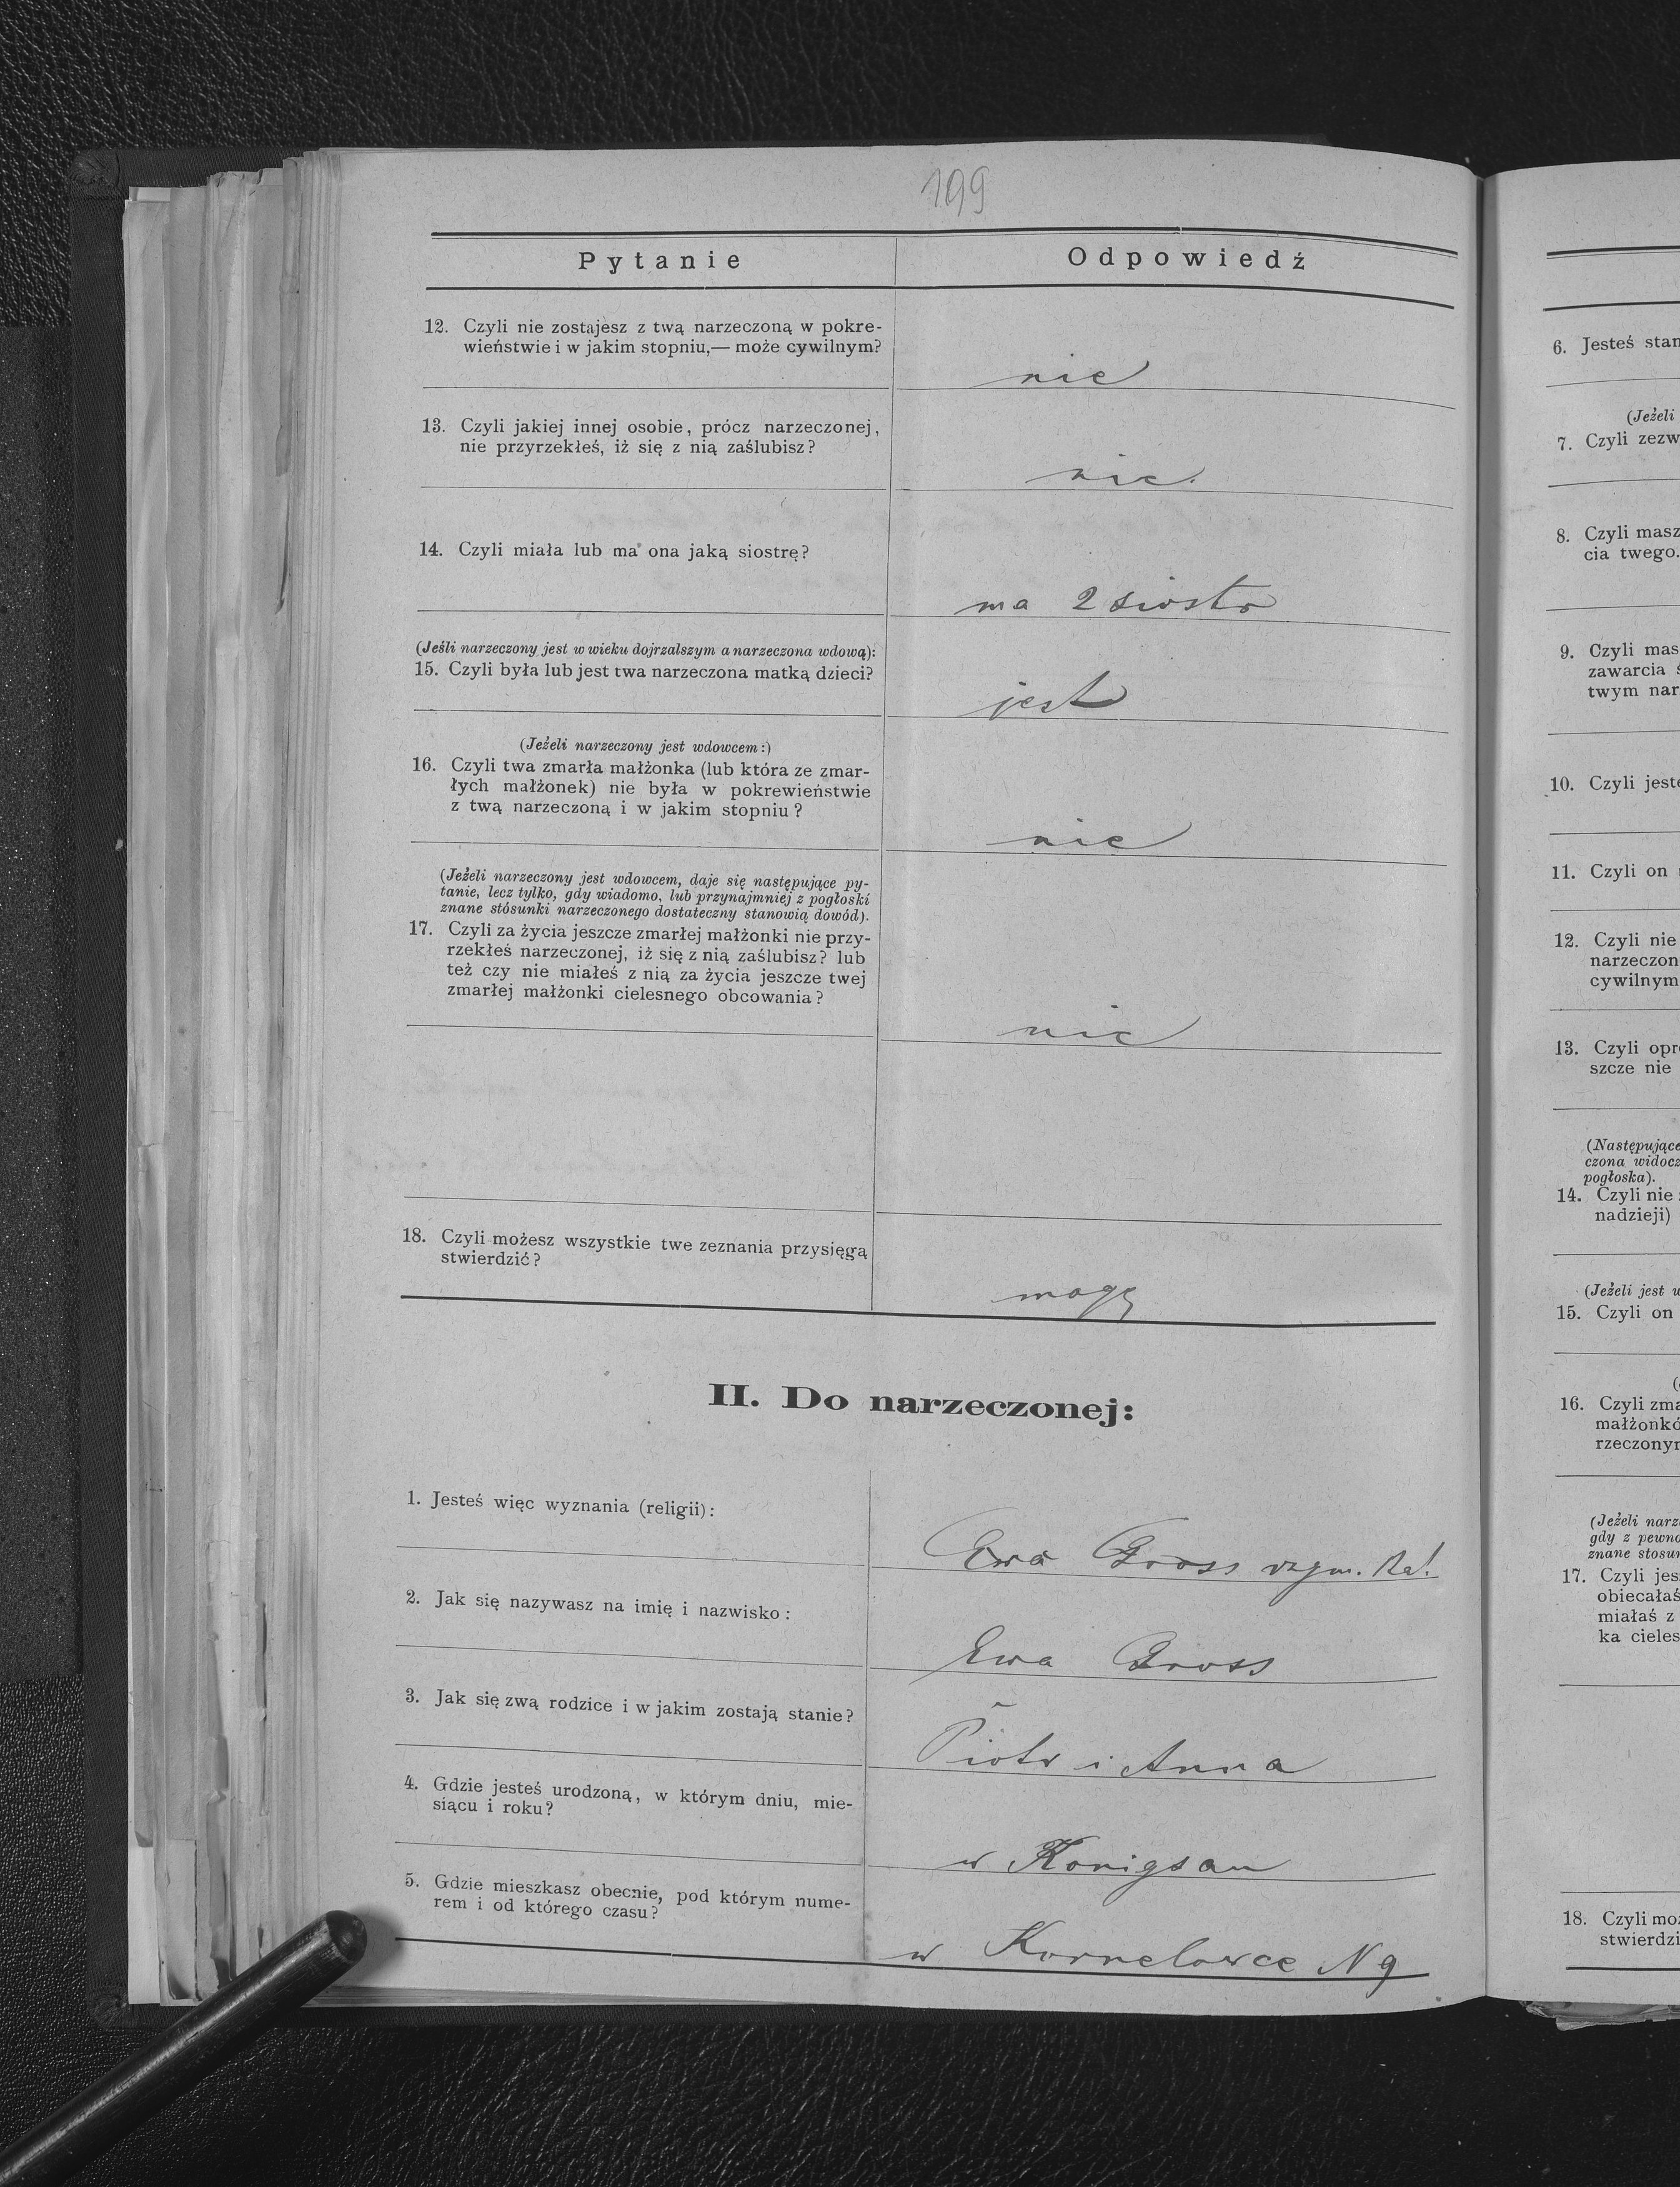 199
Pytanie
Odpowiedź
12. Czyli nie zostajesz z twą narzeczoną w pokre-
wieństwie i w jakim stopniu,— może cywilnym?
nie
13. Czyli jakiej innej osobie, prócz narzeczonej,
nie przyrzekłeś, iż się z nią zaślubisz?
nie.
14. Czyli miała lub ma ona jaką siostrę?
ma 2 siostr
(Jeśli narzeczony jest w wieku dojrzalszym a narzeczona wdową):
15. Czyli była lub jest twa narzeczona matką dzieci?
jest
(Jeżeli narzeczony jest wdowcem:)
16. Czyli twa zmarła małżonka (lub która ze zmar-
łych małżonek) nie była w pokrewieństwie
z twą narzeczoną i w jakim stopniu?
nie
(Jeżeli narzeczony jest wdowcem, daje się następujące py-
tanie, lecz tylko, gdy wiadomo, lub przynajmniej z pogłoski
znane stósunki narzeczonego dostateczny stanowią dowód).
17. Czyli za życia jeszcze zmarłej małżonki nie przy-
rzekłeś narzeczonej, iż się z nią zaślubisz? lub
też czy nie miałeś z nią za życia jeszcze twej
zmarłej małżonki cielesnego obcowania?
nie
18. Czyli możesz wszystkie twe zeznania przysięgą
stwierdzić?
mogę
II. Do narzeczonej:
1. Jesteś więc wyznania (religii):
Ewa Gross rzym. kat.
2. Jak się nazywasz na imię i nazwisko:
Ewa Gross
3. Jak się zwą rodzice i w jakim zostają stanie?
Piotr i Anna
4. Gdzie jesteś urodzoną, w którym dniu, mie-
siącu i roku?
w Konigsau
5. Gdzie mieszkasz obecnie, pod którym nume-
rem i od którego czasu?
w Kornelowce N 9
6. Jesteś stan
(Jeżeli
7. Czyli zezw
8. Czyli masz
cia twego.
9. Czyli mas
zawarcia ś
twym nar
10. Czyli jeste
11. Czyli on
12. Czyli nie
narzeczon
cywilnym
13. Czyli opr
szcze nie
(Następujące
czona widocz
pogłoska).
14. Czyli nie
nadzieji)
(Jeżeli jest w
15. Czyli on
16. Czyli zma
małżonkó
rzeczonym
(Jeżeli narz
gdy z pewno
znane stosun
17. Czyli jes
obiecałaś
miałaś z
ka cieles
18. Czyli moż
stwierdzi